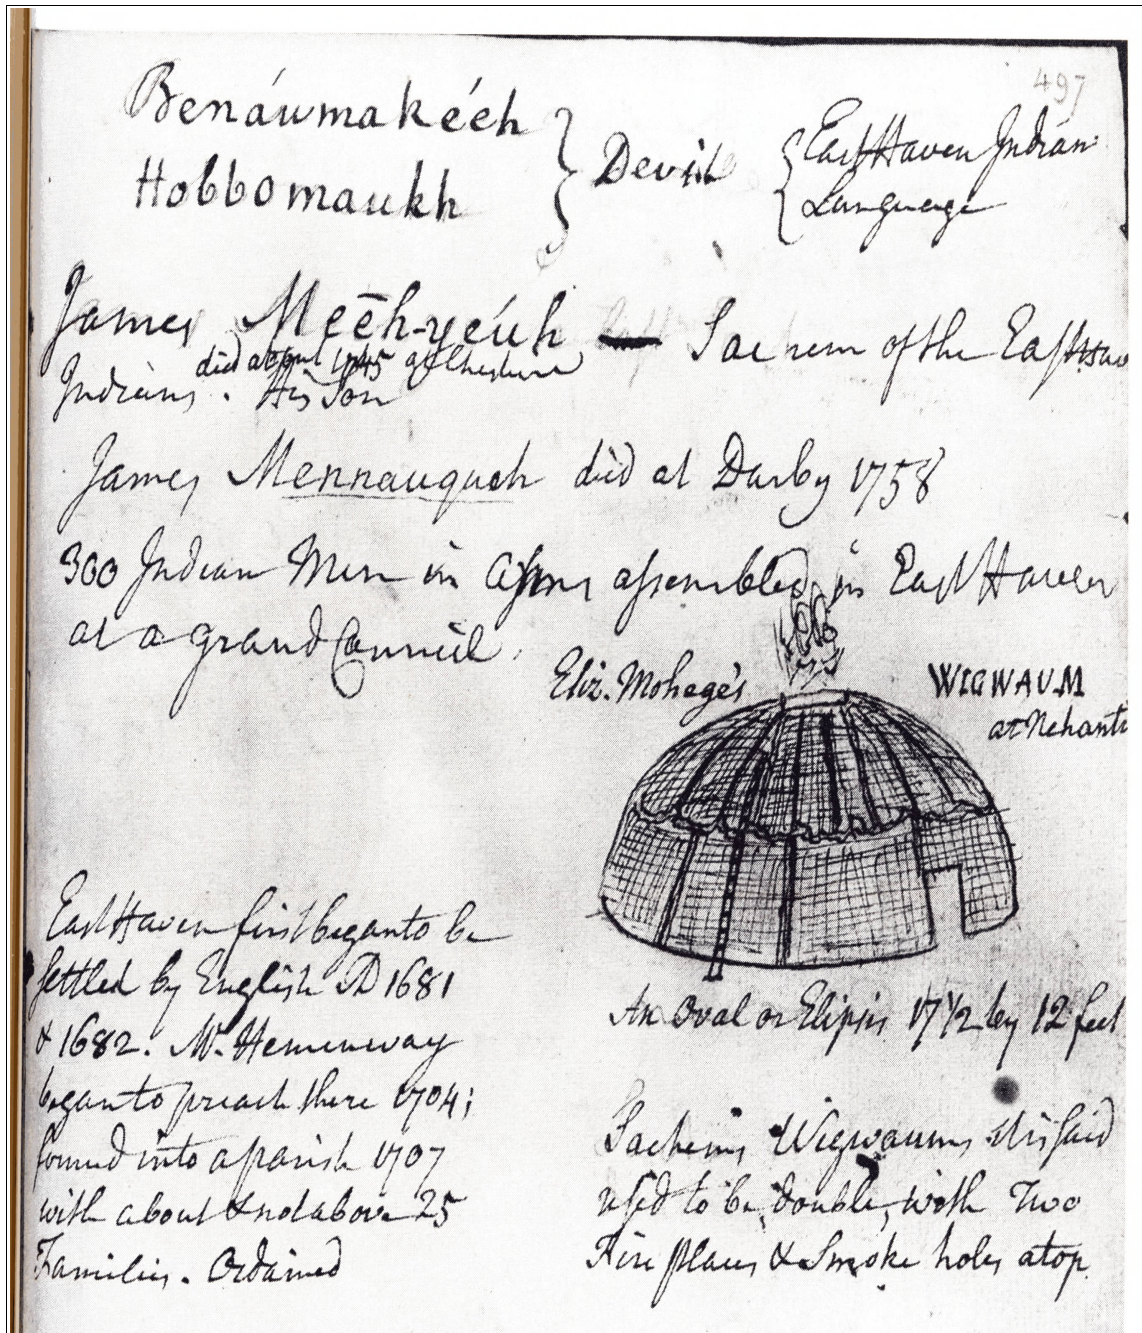 497
Benáwmakééh
Hobbomaukh
} Devil { East Haven Indian
Language
James Mēēh-yéuh Sachem of the East Hav
died 1745 at Cheshire
Indians. His Son
James Mennauqueh died at Darby 1758
300 Indian Men in Arms assembled in East Haven
at a grand Council.
Eliz. Mohege's
WIGWAUM
at Nehanti
East Haven first began to be
settled by English AD 1681
& 1682. Mr. Hemenway
began to preach there 1704;
formed into a parish 1707
with about & not above 25
Families. Ordained
An Oval or Elipsis 17 1/2 by 12 feet
Sachems Wigwaums tis said
used to be double, with Two
Fire places & Smoke holes atop